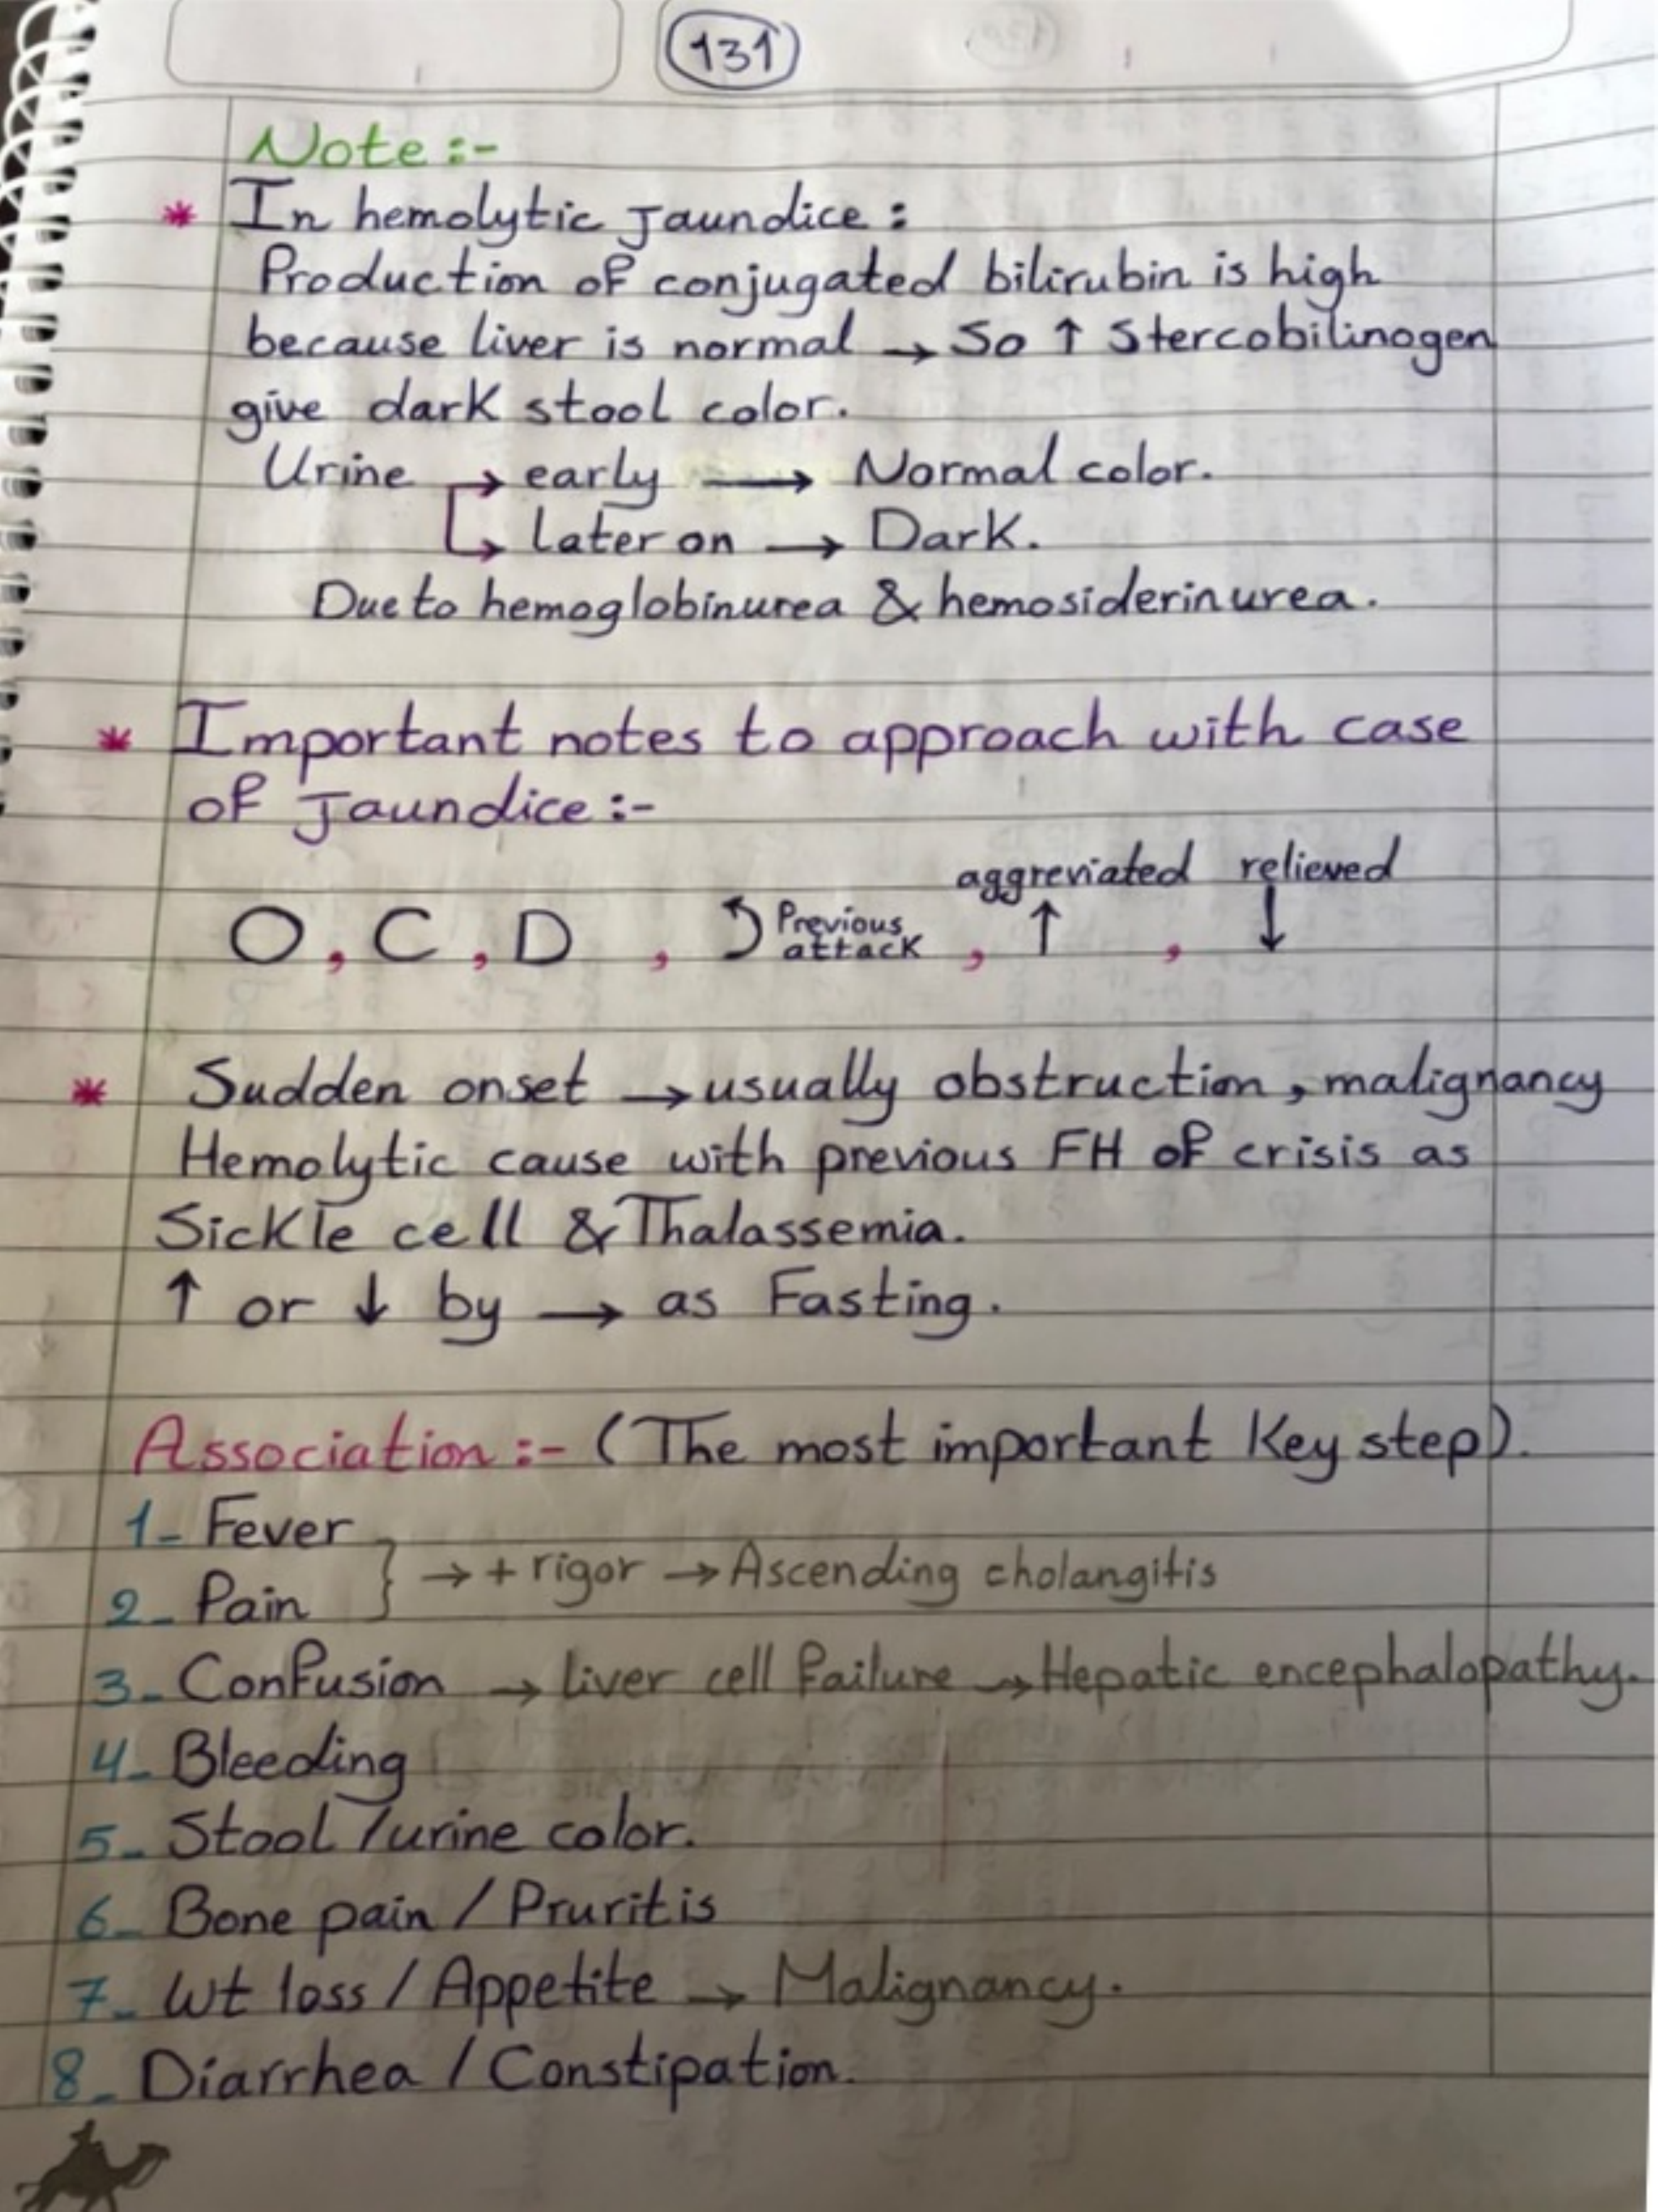 131
Note:-
* In hemolytic Jaundice:
Production of conjugated bilirubin is high
because liver is normal → So ↑ Stercobilinogen
give dark stool color.
Urine → early → Normal color.
↳ Later on → Dark.
Due to hemoglobinurea & hemosiderinurea.
* Important notes to approach with case
of Jaundice:-
aggreviated relieved
O, C, D, Previous attack, ↑, ↓
* Sudden onset → usually obstruction, malignancy
Hemolytic cause with previous FH of crisis as
Sickle cell & Thalassemia.
↑ or ↓ by → as Fasting.
Association:- (The most important Key step).
1- Fever
} → + rigor → Ascending cholangitis
2- Pain
3- Confusion → liver cell failure → Hepatic encephalopathy.
4- Bleeding
5- Stool / urine color.
6- Bone pain / Pruritis
7- Wt loss / Appetite → Malignancy.
8- Diarrhea / Constipation.